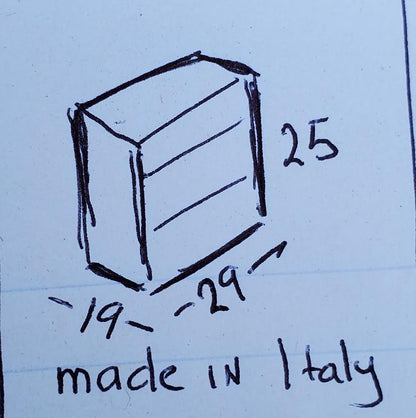 25
29
19
made in Italy